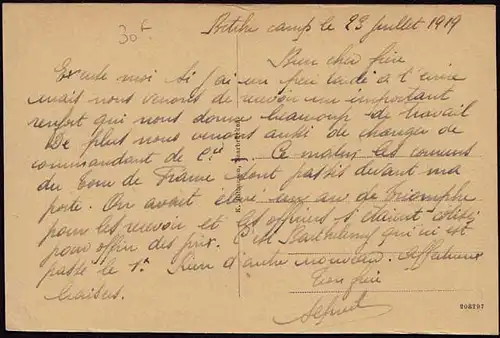 30f
Bitche camp le 23 juillet 1919
Bien cher frère
Excuse moi si j'ai un peu tardé a t'écrire
mais nous venons de recevoir un important
renfort qui nous donne beaucoup de travail
De plus nous venons aussi de changer de
commandant de Cie. Ce matin les coureurs
du tour de France sont passés devant ma
porte. On avait élevé un arc de Triomphe
pour les recevoir et les officiers s'étaient cotisés
pour offrir des prix. C'est Barthélemy qui est
passé le 1er. Rien d'autre nouveau. Affectueux
baisers.
Ton frère
208797